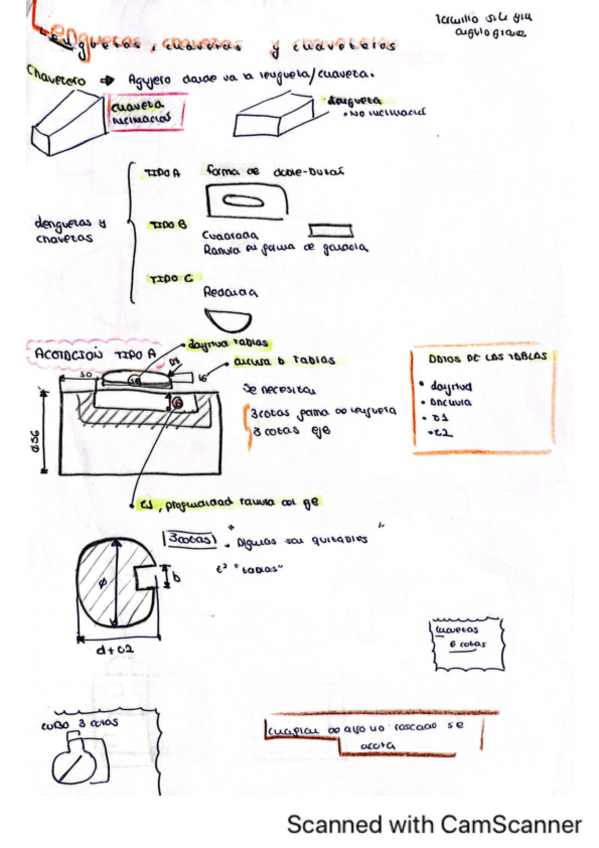 Lenguetas, chavetas y chaveteros
Tornillo sale gra
angulo grave
Chavetero ⇒ Agujero donde va la lengueta/chaveta.
chaveta
inclinación
lengueta
• No inclinación
lenguetas y
chavetas
TIPO A forma de doble-
TIPO B
Cuadrada
Ranura en forma de
TIPO C
Redonda
ACOTACIÓN TIPO A
longitud tablas
anchura b tablas
30
16
ø56
Se necesitan
3 cotas forma de lengueta
3 cotas eje
DATOS DE LAS TABLAS
• longitud
• anchura
• t1
• t2
t1, profundidad ranura del eje
3 cotas
" - Algunas son quitables "
t2 "tablas"
ø
b
d+t2
chavetas
6 cotas
CUBO 3 cotas
cualquier
de algo no roscado se
acota
Scanned with CamScanner